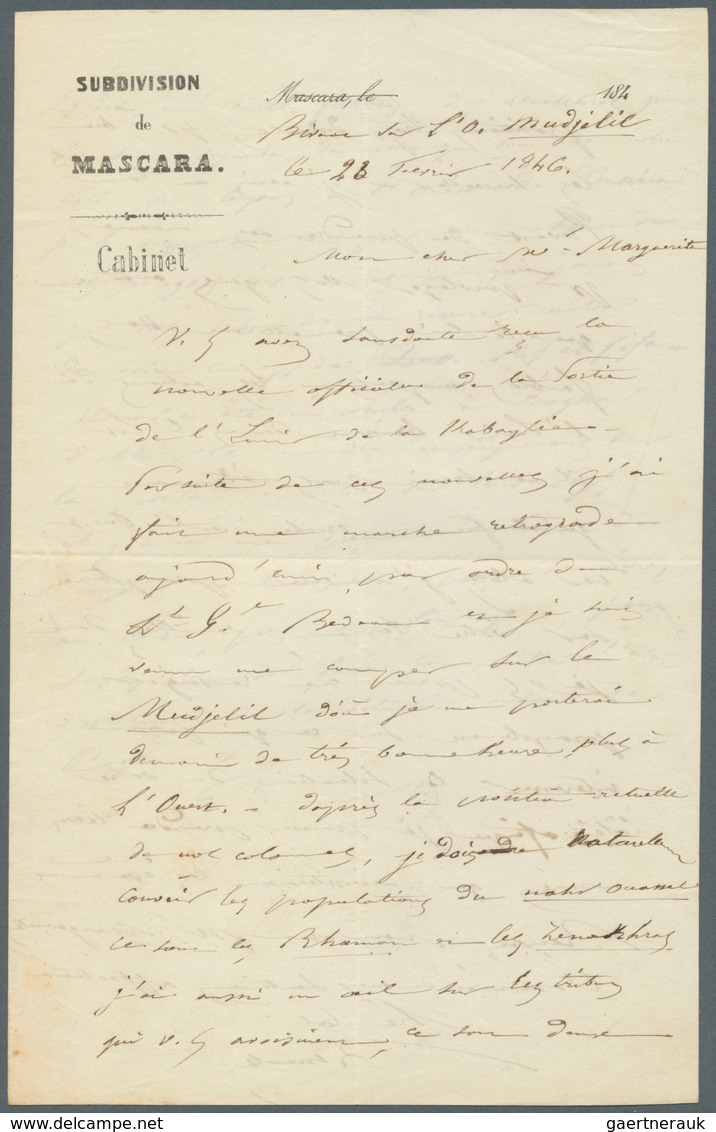 SUBDIVISION
de
MASCARA.
Cabinet
Mascara, le 184
Bivouac sur L'O. Mudjelil
le 23 Fevrier 1846.
Mon cher Mr Marguerite
V. s avez sans doute reçu la
nouvelle officielle de la Sortie
de l'Emir de la Kabaylie -
Par suite de ces nouvelles j'ai
fait une marche retrograde
aujourd'hui par ordre du
Lt. G.al Bedeau et je suis
venu me camper sur le
Mudjelil d'où je me porterai
demain de très bonne heure plus à
l'Ouest. - d'après la position actuelle
de nos colonnes, je dois naturellem
couvrir les populations du nahr ouassel
ce sont les Rhaman et les Zenakhras
j'ai aussi un œil sur les tribus
qui v. s avoisinent, ce sont donc
delcampe.net
gaertnerauk